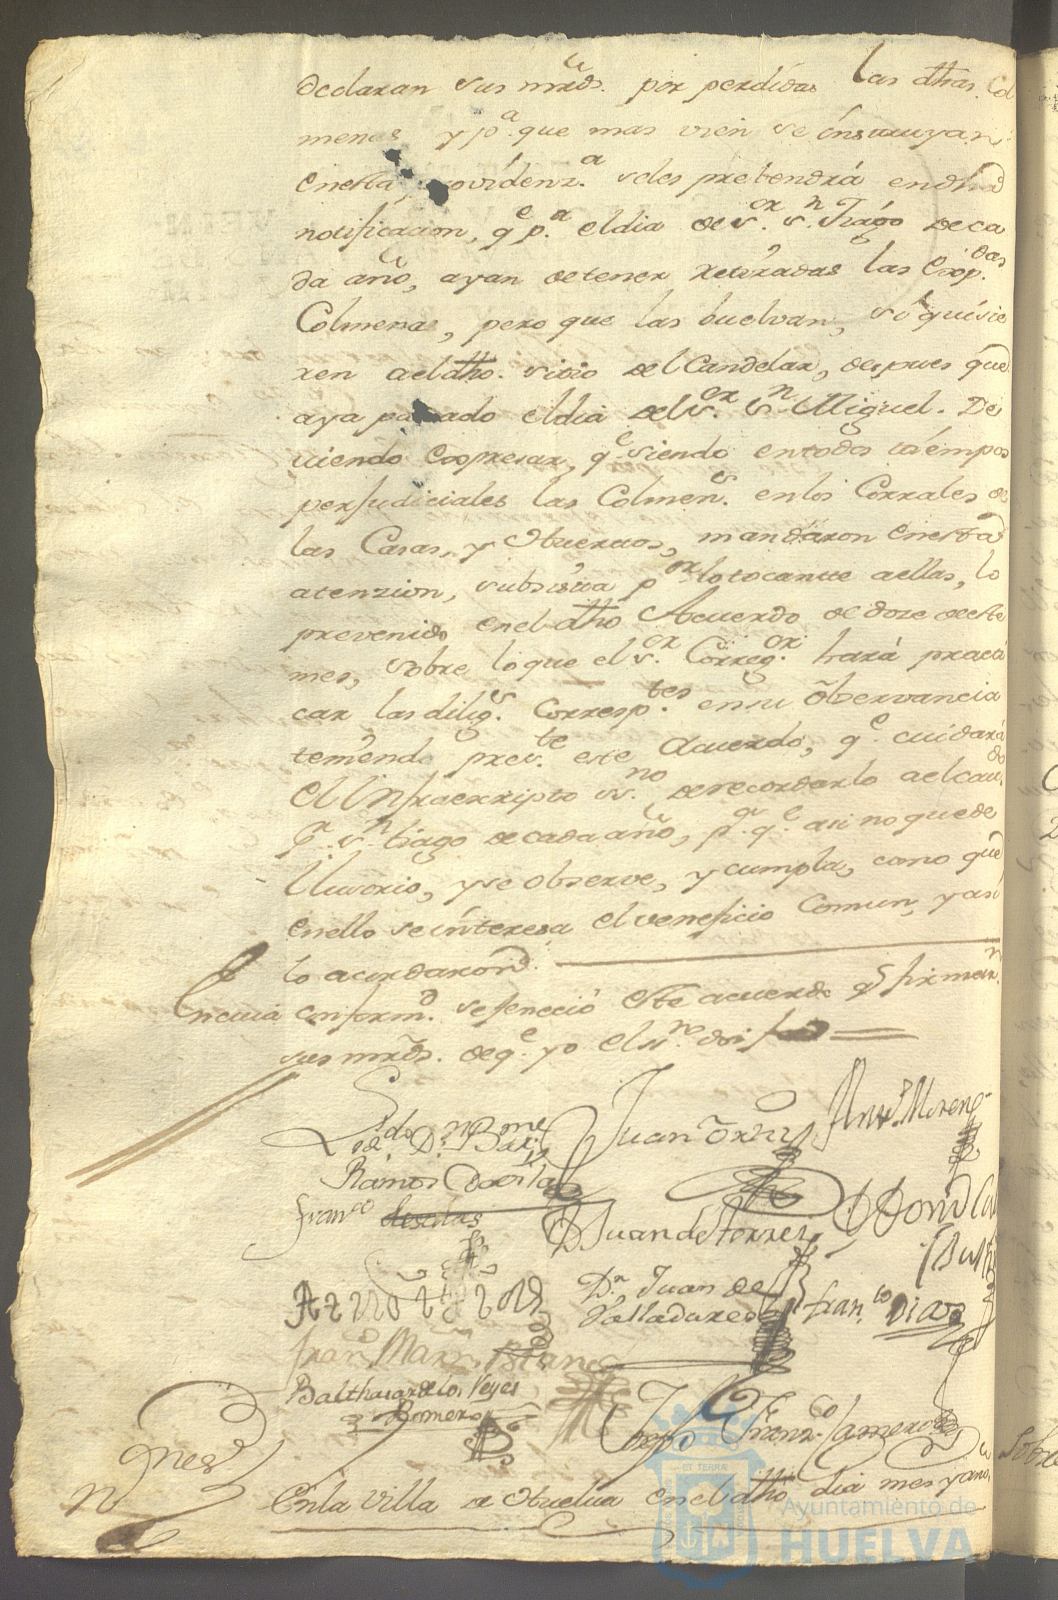 declaran sus mrds. por perdidas las dhas. Col
menas y pa. que mas vien se instruuyan
en esta providenza. seles prebendrá en dha
notificacion, qe pa. el dia de sor. sn. Tiago de ca
da año, ayan de tener retiradas las Expdas.
Colmenas, pero que las buelvan, si quisie
ren a el dho. sitio del Candelar, despues que
aya pasado el dia del sor. Sn. Miguel. De
viendo expresar, qe siendo en todos tiempos
perjudiciales las Colmens. en los Corrales de
las Casas, y Huertos, mandaron en esta
atenzion, subsista por lo tocante a ellas, lo
prevenido en el dho Acuerdo de doze de este
mes, sobre lo que el sor. Corregor. hará practi
car las diligs. Corresptes. en su observancia
teniendo preste. este Acuerdo, qe. cuidará
el Infraescripto ssno. de recordarlo a el cavdo
Pr. sn. tiago de cada año, pa. qe. asi no quede
Ylusorio, y se observe, y cumpla, como que
en ello se interesa el veneficio Comun, y asi
lo acordaron
En cuia conformd. se feneció este acuerdo q firmarn
sus mrds. de qe. yo el ssno. doi fee
Lizdo. Dn. Bme
Ramos Davila
Juan Ortiz
Anto. Moreno
Franco
D Juan de Torres
D Domo
Dn. Juan de
Valladares
franco Diaz
fran Martn. Blanco
Balthasar de los Reyes
Romero
Franzco. Camero
En la Villa de Huelva en el dho dia mes y año,
Sobre
Ayuntamiento de
HUELVA